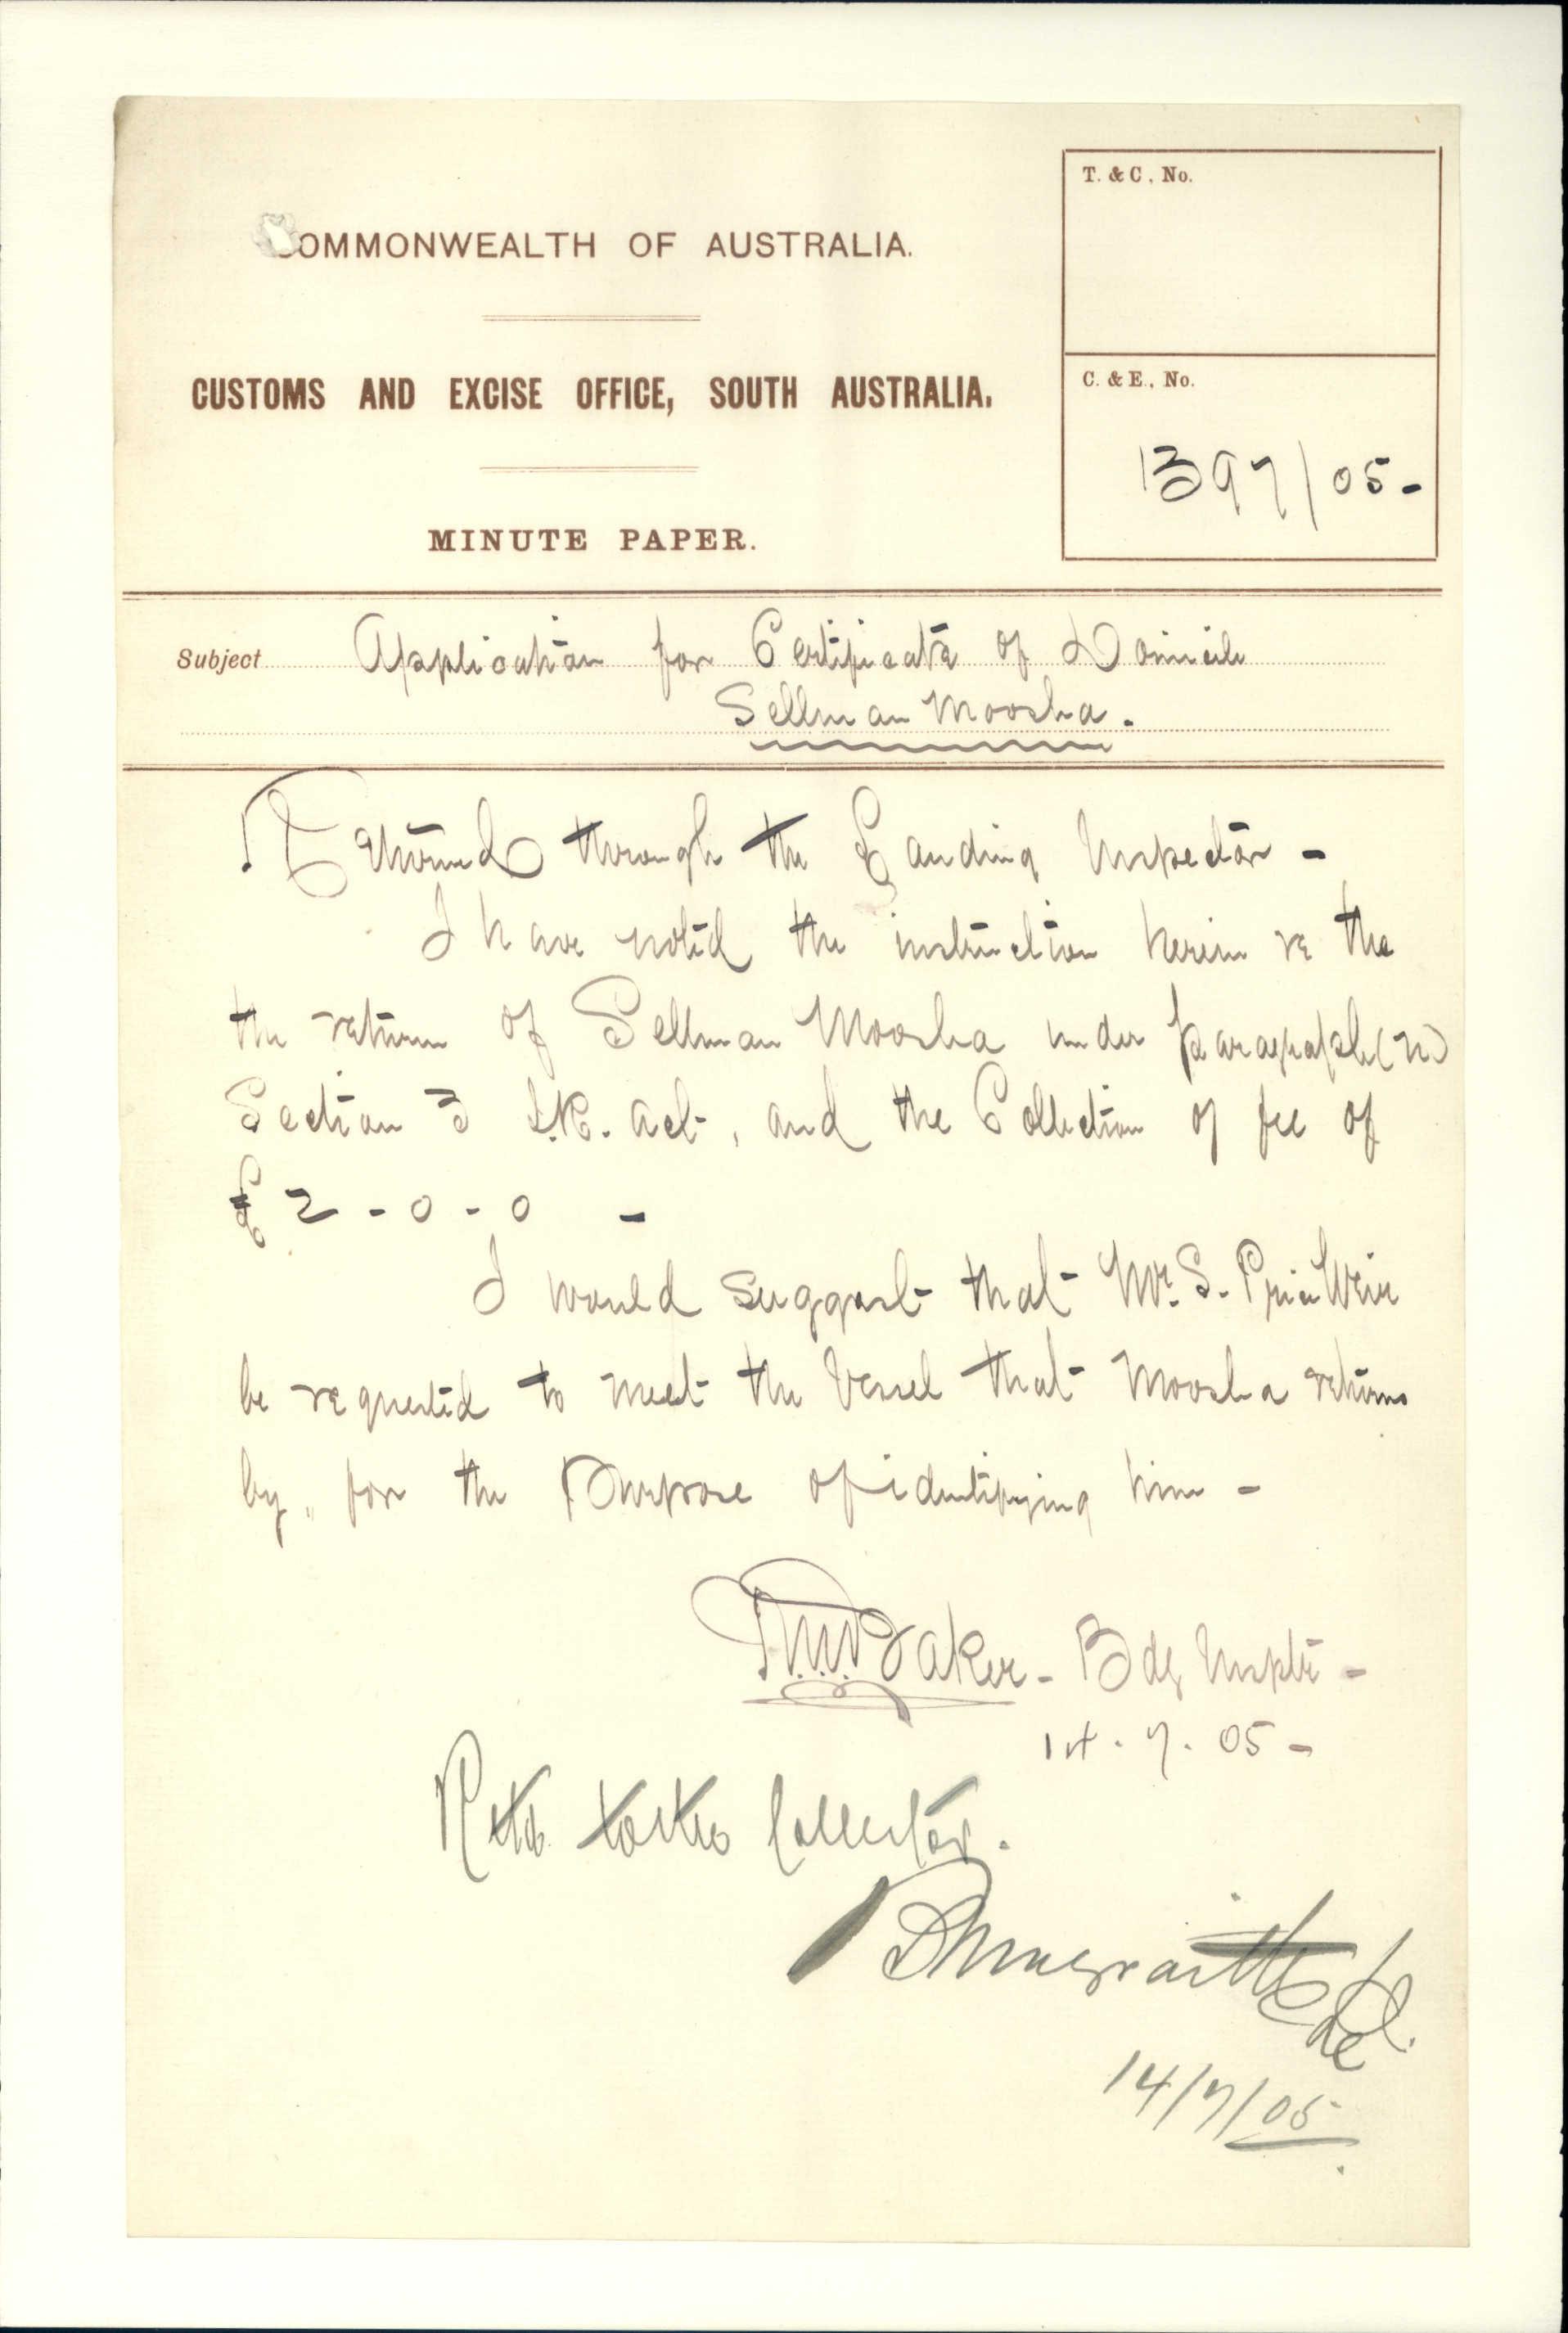 COMMONWEALTH OF AUSTRALIA.
CUSTOMS AND EXCISE OFFICE, SOUTH AUSTRALIA.
MINUTE PAPER.
T. & C. No.
C. & E., No.
1397/05-
Subject Application for Certificate of Domicile
Sellman Moosha.
Returned through the Landing Inspector -
I have noted the instruction herein re the
the return of Sellman Moosha under paragraph (n)
Section 3 I.R. Act, and the Collection of fee of
£2-0-0 -
I would suggest that Mr. S. Price Weir
be requested to meet the Vessel that Moosha returns
by, for the Purpose of identifying him -
Baker - Bdg Insptr -
14.7.05-
to the Collector.
14/7/05